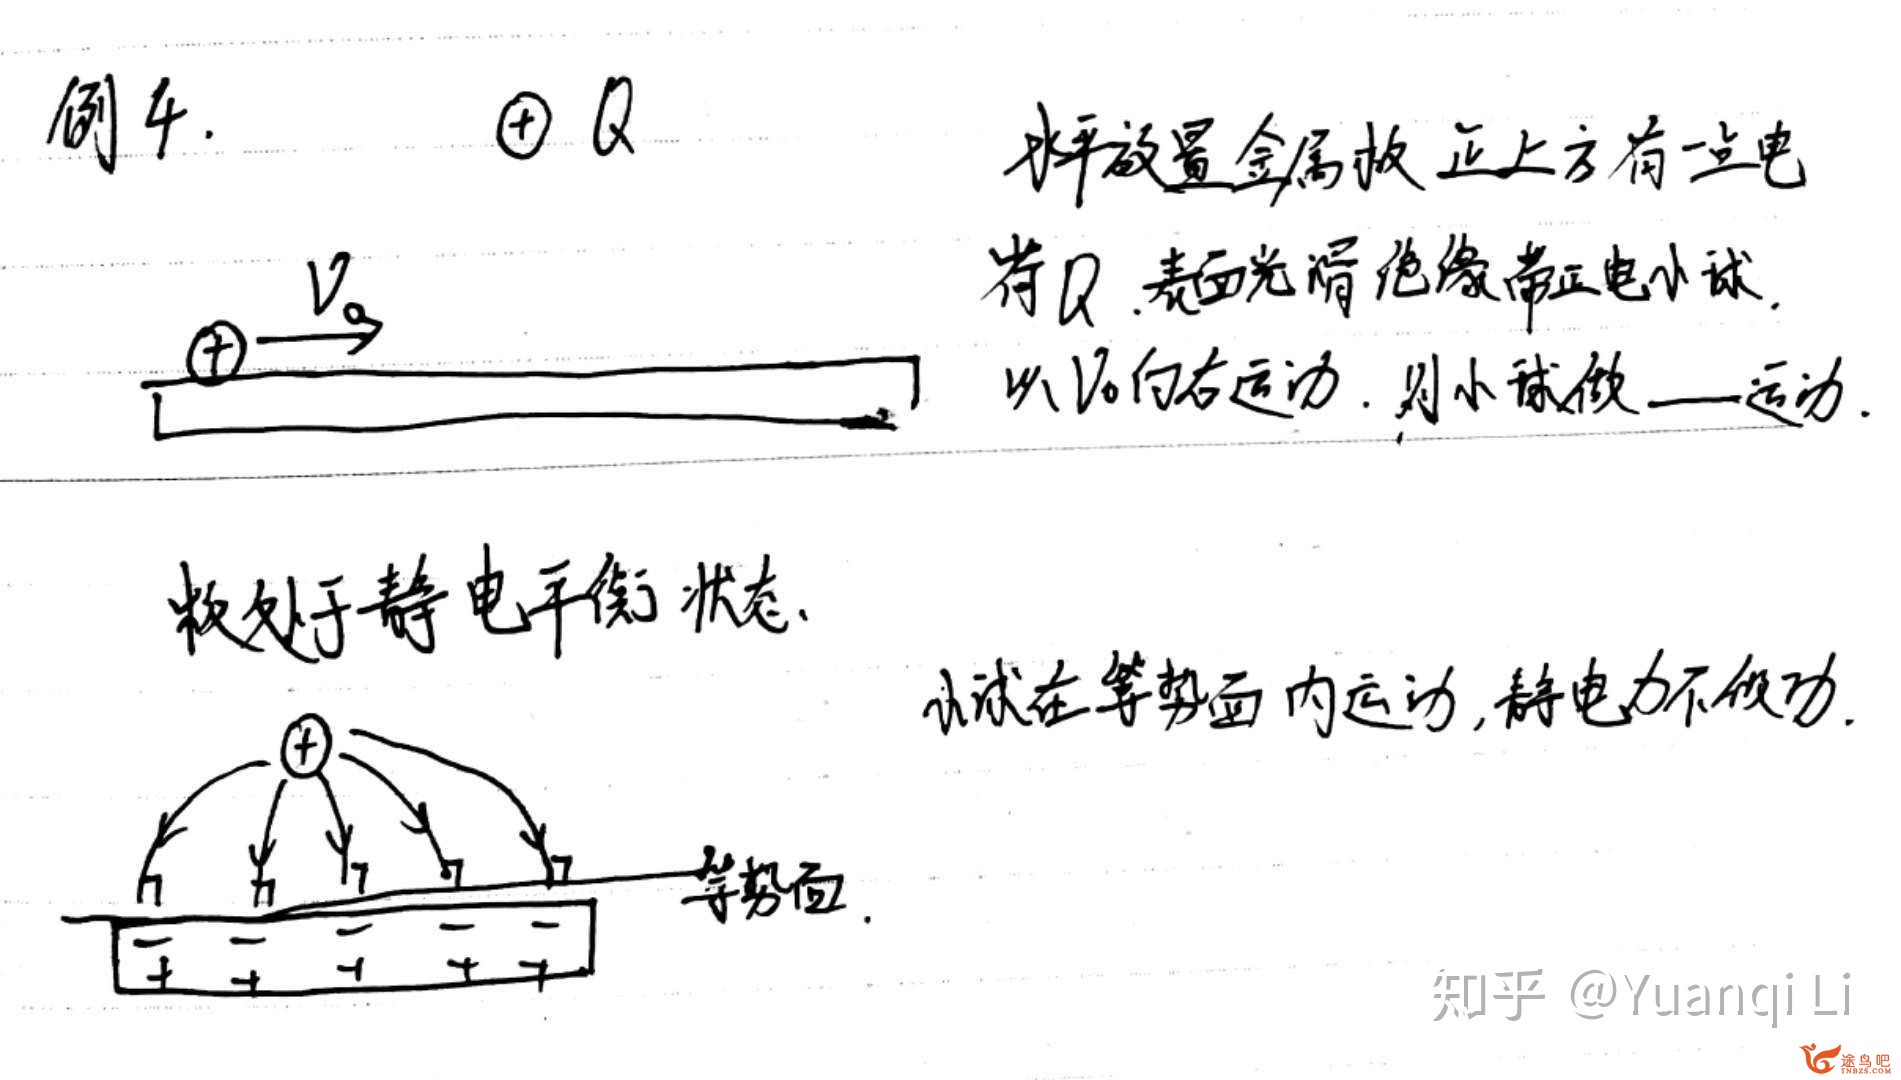 例4.
+ Q
水平放置金属板正上方有一点电
荷Q.表面光滑绝缘带正电小球.
以V₀向右运动.则小球做——运动.
V₀
+
板处于静电平衡状态.
小球在等势面内运动,静电力不做功.
+
等势面.
- - - - -
+ + + + +
知乎 @Yuanqi Li
途鸟吧
TNBZS.COM